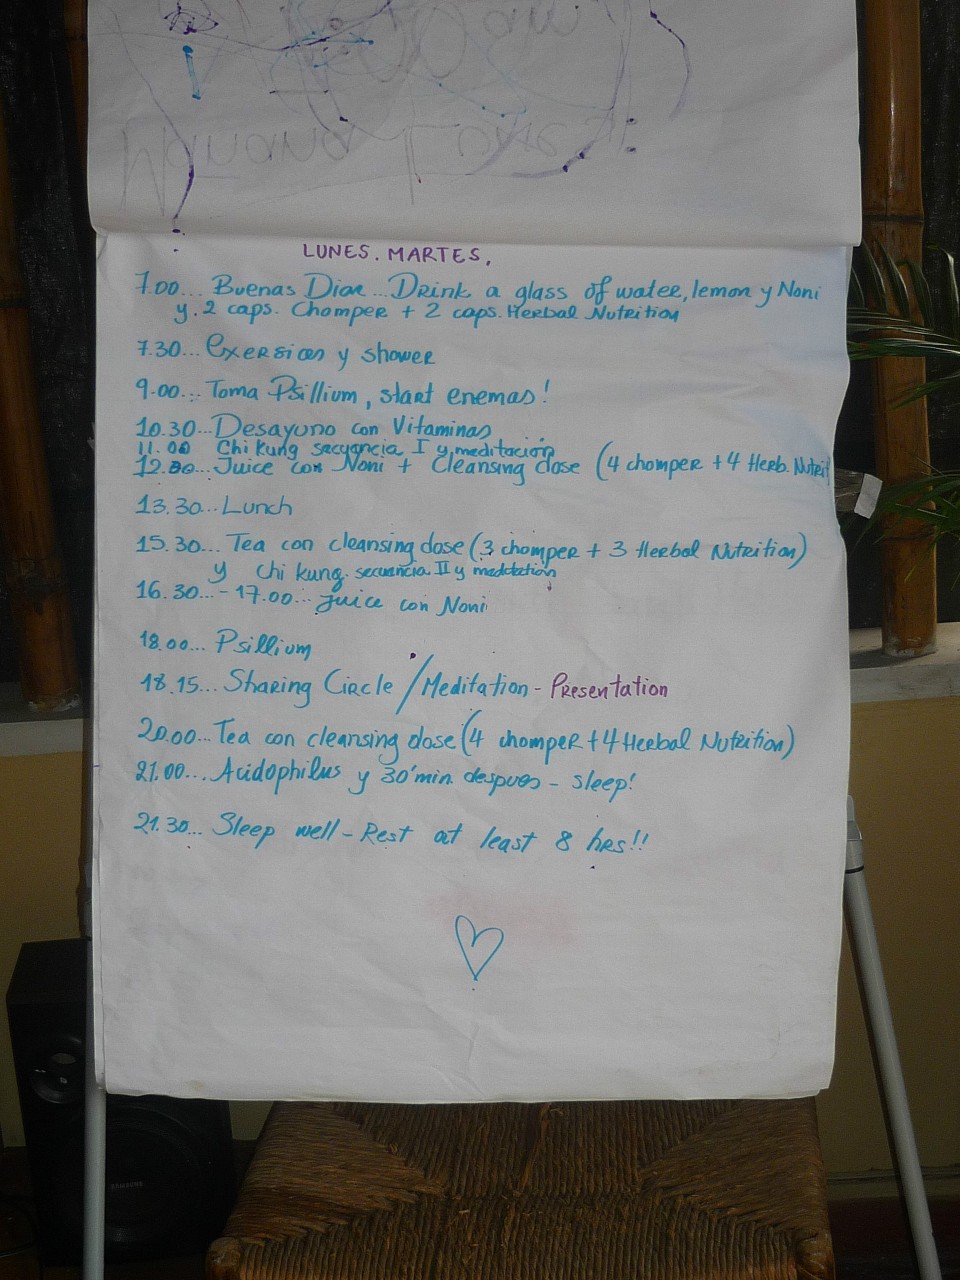 LUNES. MARTES.
7.00... Buenas Dias ... Drink a glass of water, lemon y Noni
y. 2 caps. Chomper + 2 caps. Herbal Nutrition
7.30... Exersices y shower
9.00... Toma Psillium, start enemas!
10.30... Desayuno con Vitaminas
11.00 Chi Kung secuencia I y meditación
12.30... Juice con Noni + Cleansing dose (4 chomper + 4 Herb. Nutrit
13.30... Lunch
15.30... Tea con cleansing dose (3 chomper + 3 Herbal Nutrition)
y Chi kung. secuancia II y meditation
16.30... - 17.00... Juice con Noni
18.00... Psillium
18.15... Sharing Circle / Meditation - Presentation
20.00... Tea con cleansing dose (4 chomper + 4 Herbal Nutrition)
21.00... Acidophilus y 30'min despues - sleep!
21.30... Sleep well - Rest at least 8 hrs!!